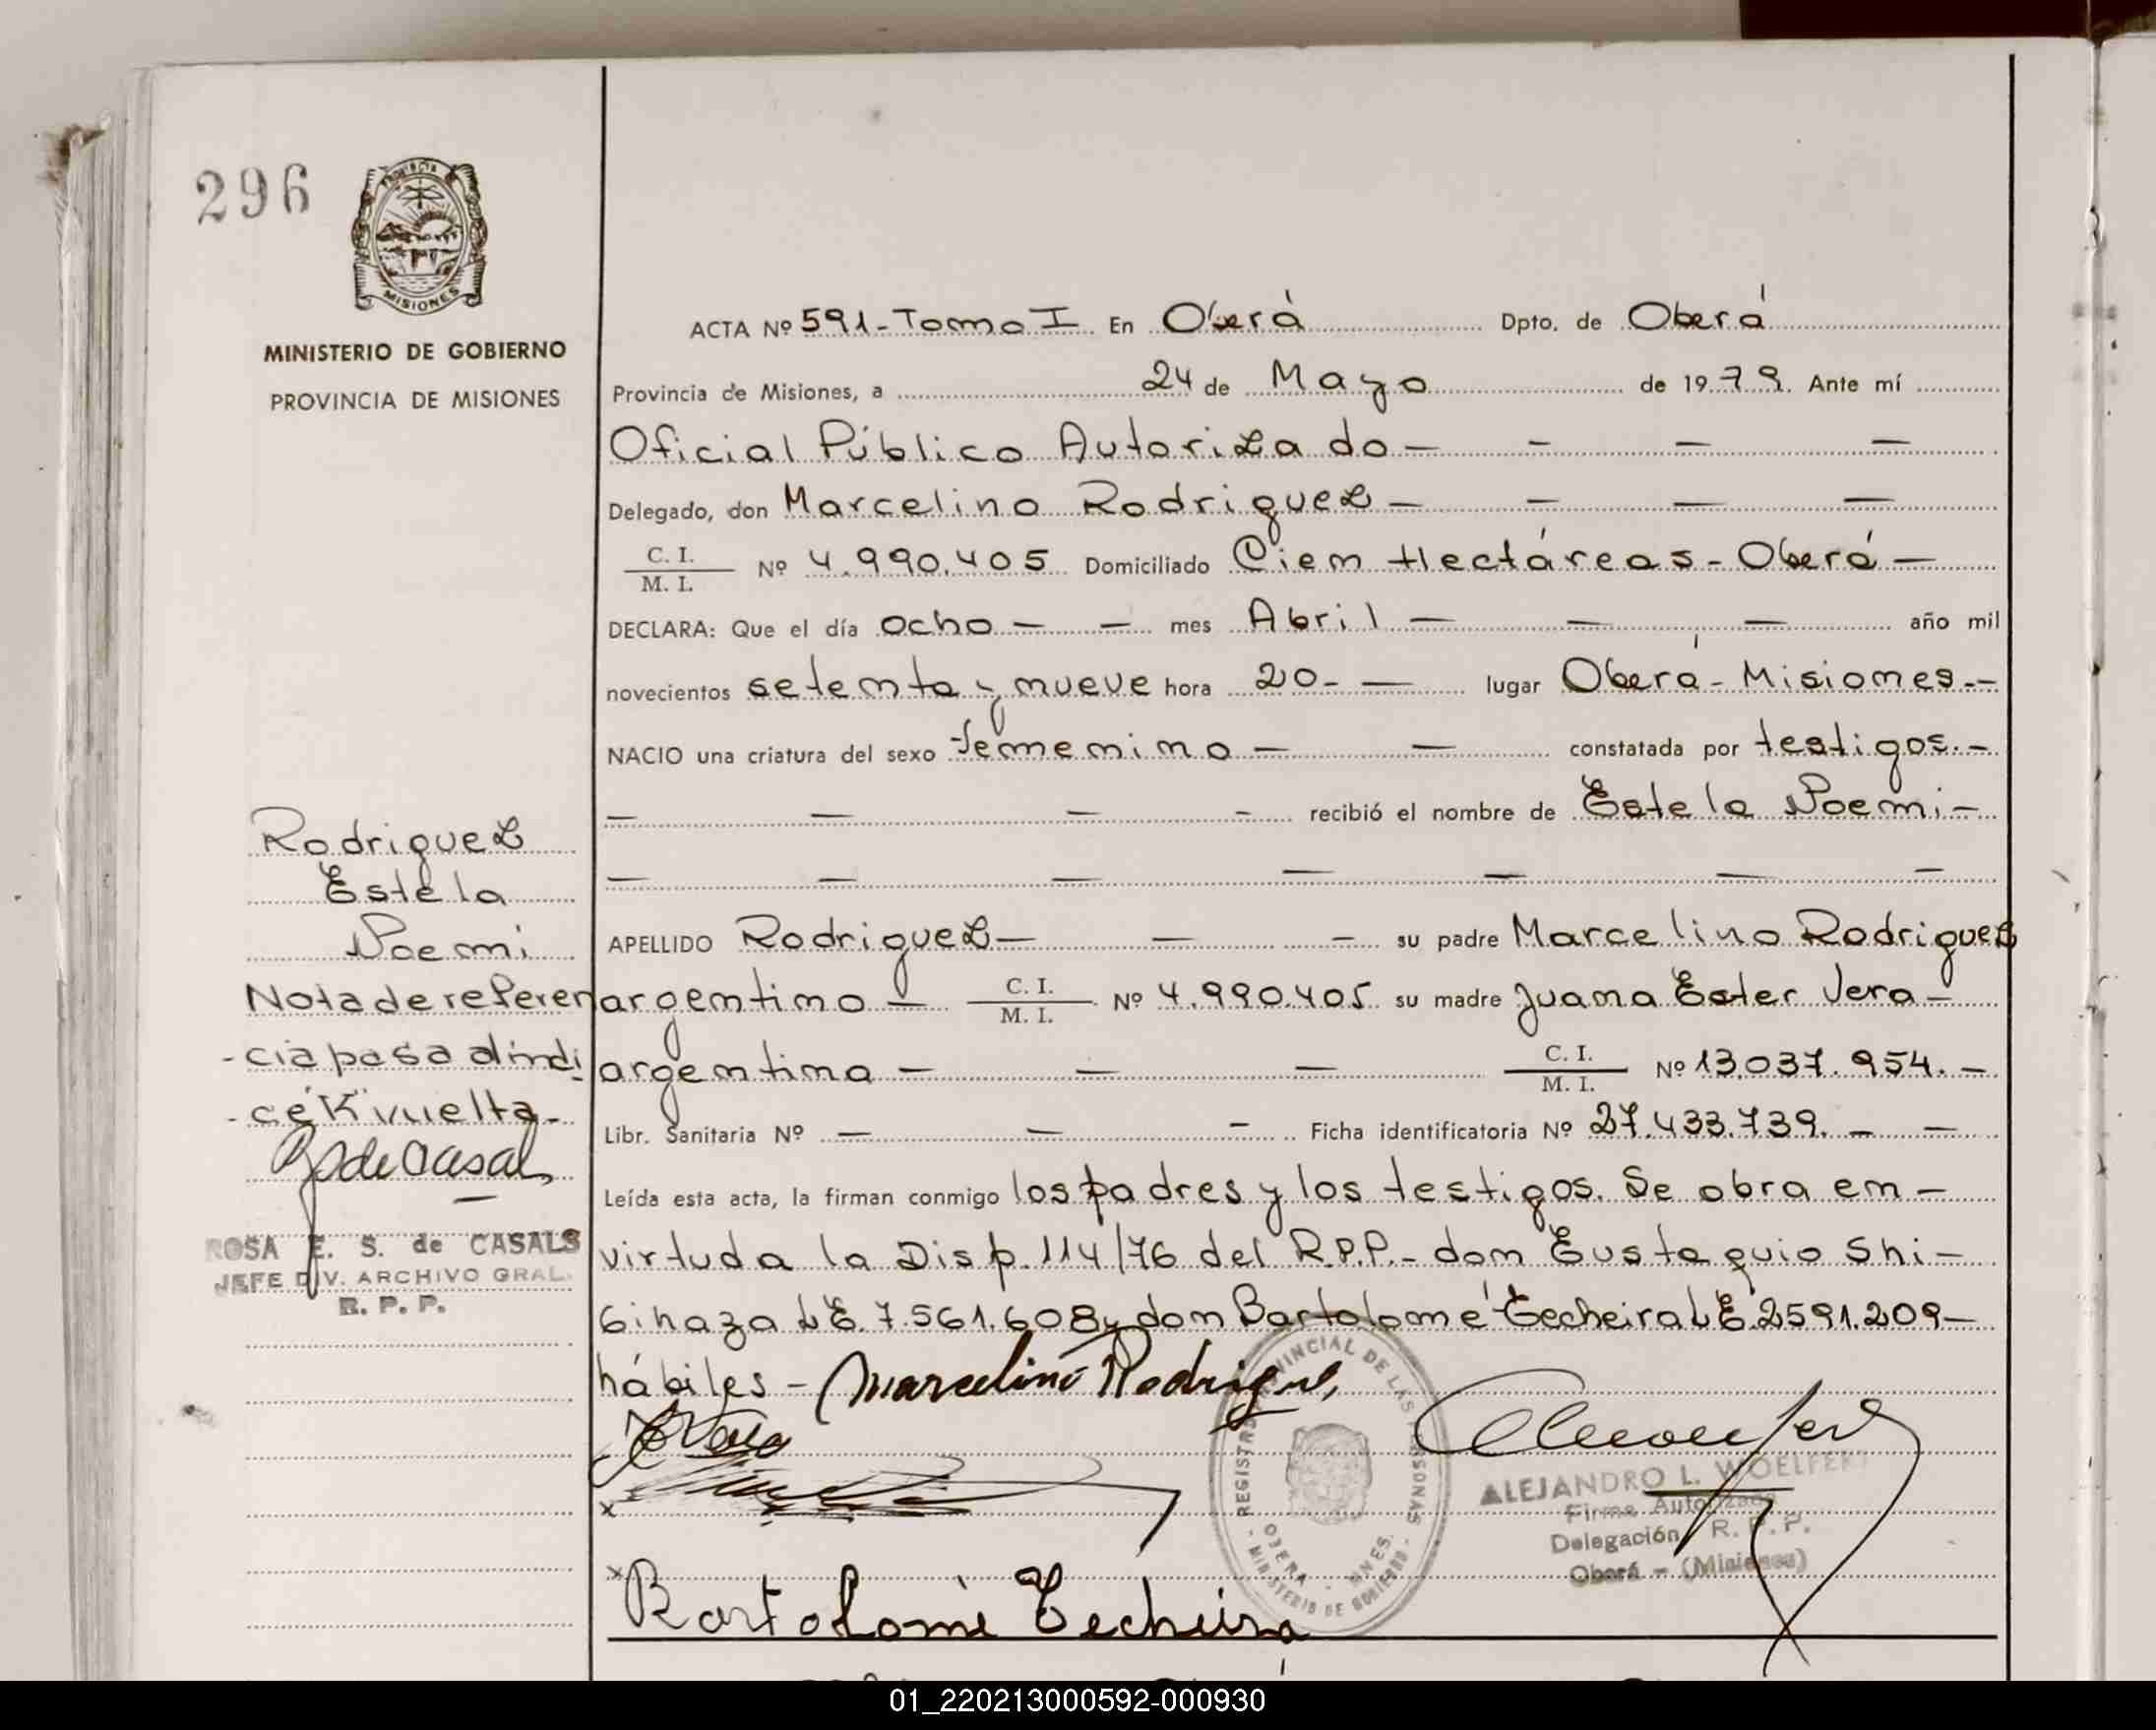 296
MISIONES
MINISTERIO DE GOBIERNO
PROVINCIA DE MISIONES
ACTA Nº 591-Tomo I En Oberá Dpto. de Oberá
Provincia de Misiones, a 24 de Mayo de 1979. Ante mí
Oficial Público Autorizado — — — —
Delegado, don Marcelino Rodriguez — — — —
C. I.
M. I. Nº 4.990.405 Domiciliado Cien Hectáreas - Oberá —
DECLARA: Que el día ocho — — mes Abril — — — año mil
novecientos setenta y nueve hora 20- — lugar Oberá - Misiones.-
NACIO una criatura del sexo femenino — — constatada por testigos.-
— — — — recibió el nombre de Estela Noemi-
— — — — — — —
APELLIDO Rodriguez — — — su padre Marcelino Rodriguez
argentino — C. I.
M. I. Nº 4.990.405 su madre Juana Ester Vera —
argentina — — — C. I.
M. I. Nº 13.037.954. —
Libr. Sanitaria Nº — — — Ficha identificatoria Nº 27.433.739. — —
Leída esta acta, la firman conmigo los padres y los testigos. Se obra en —
virtud a la Disp. 114/76 del R.P.P.- don Eustaquio Shi —
Gihaza LE. 7.561.608 y don Bartolomé Techeira LE. 2591.209 —
hábiles - Marcelino Rodriguez
Vera
x
x
Bartolomé Techeira
Rodriguez
Estela
Noemi
Nota de referen
-cia pasa al indi
-ce "K" vuelta-
R de Casals
ROSA E. S. de CASALS
JEFE DIV. ARCHIVO GRAL.
R. P. P.
REGISTRO PROVINCIAL DE LAS PERSONAS
OBERA - MNES.
- MINISTERIO DE GOBIERNO -
ALEJANDRO L. WOELFERT
Firma Autorizada
Delegación R. P. P.
Oberá - (Misiones)
01_220213000592-000930